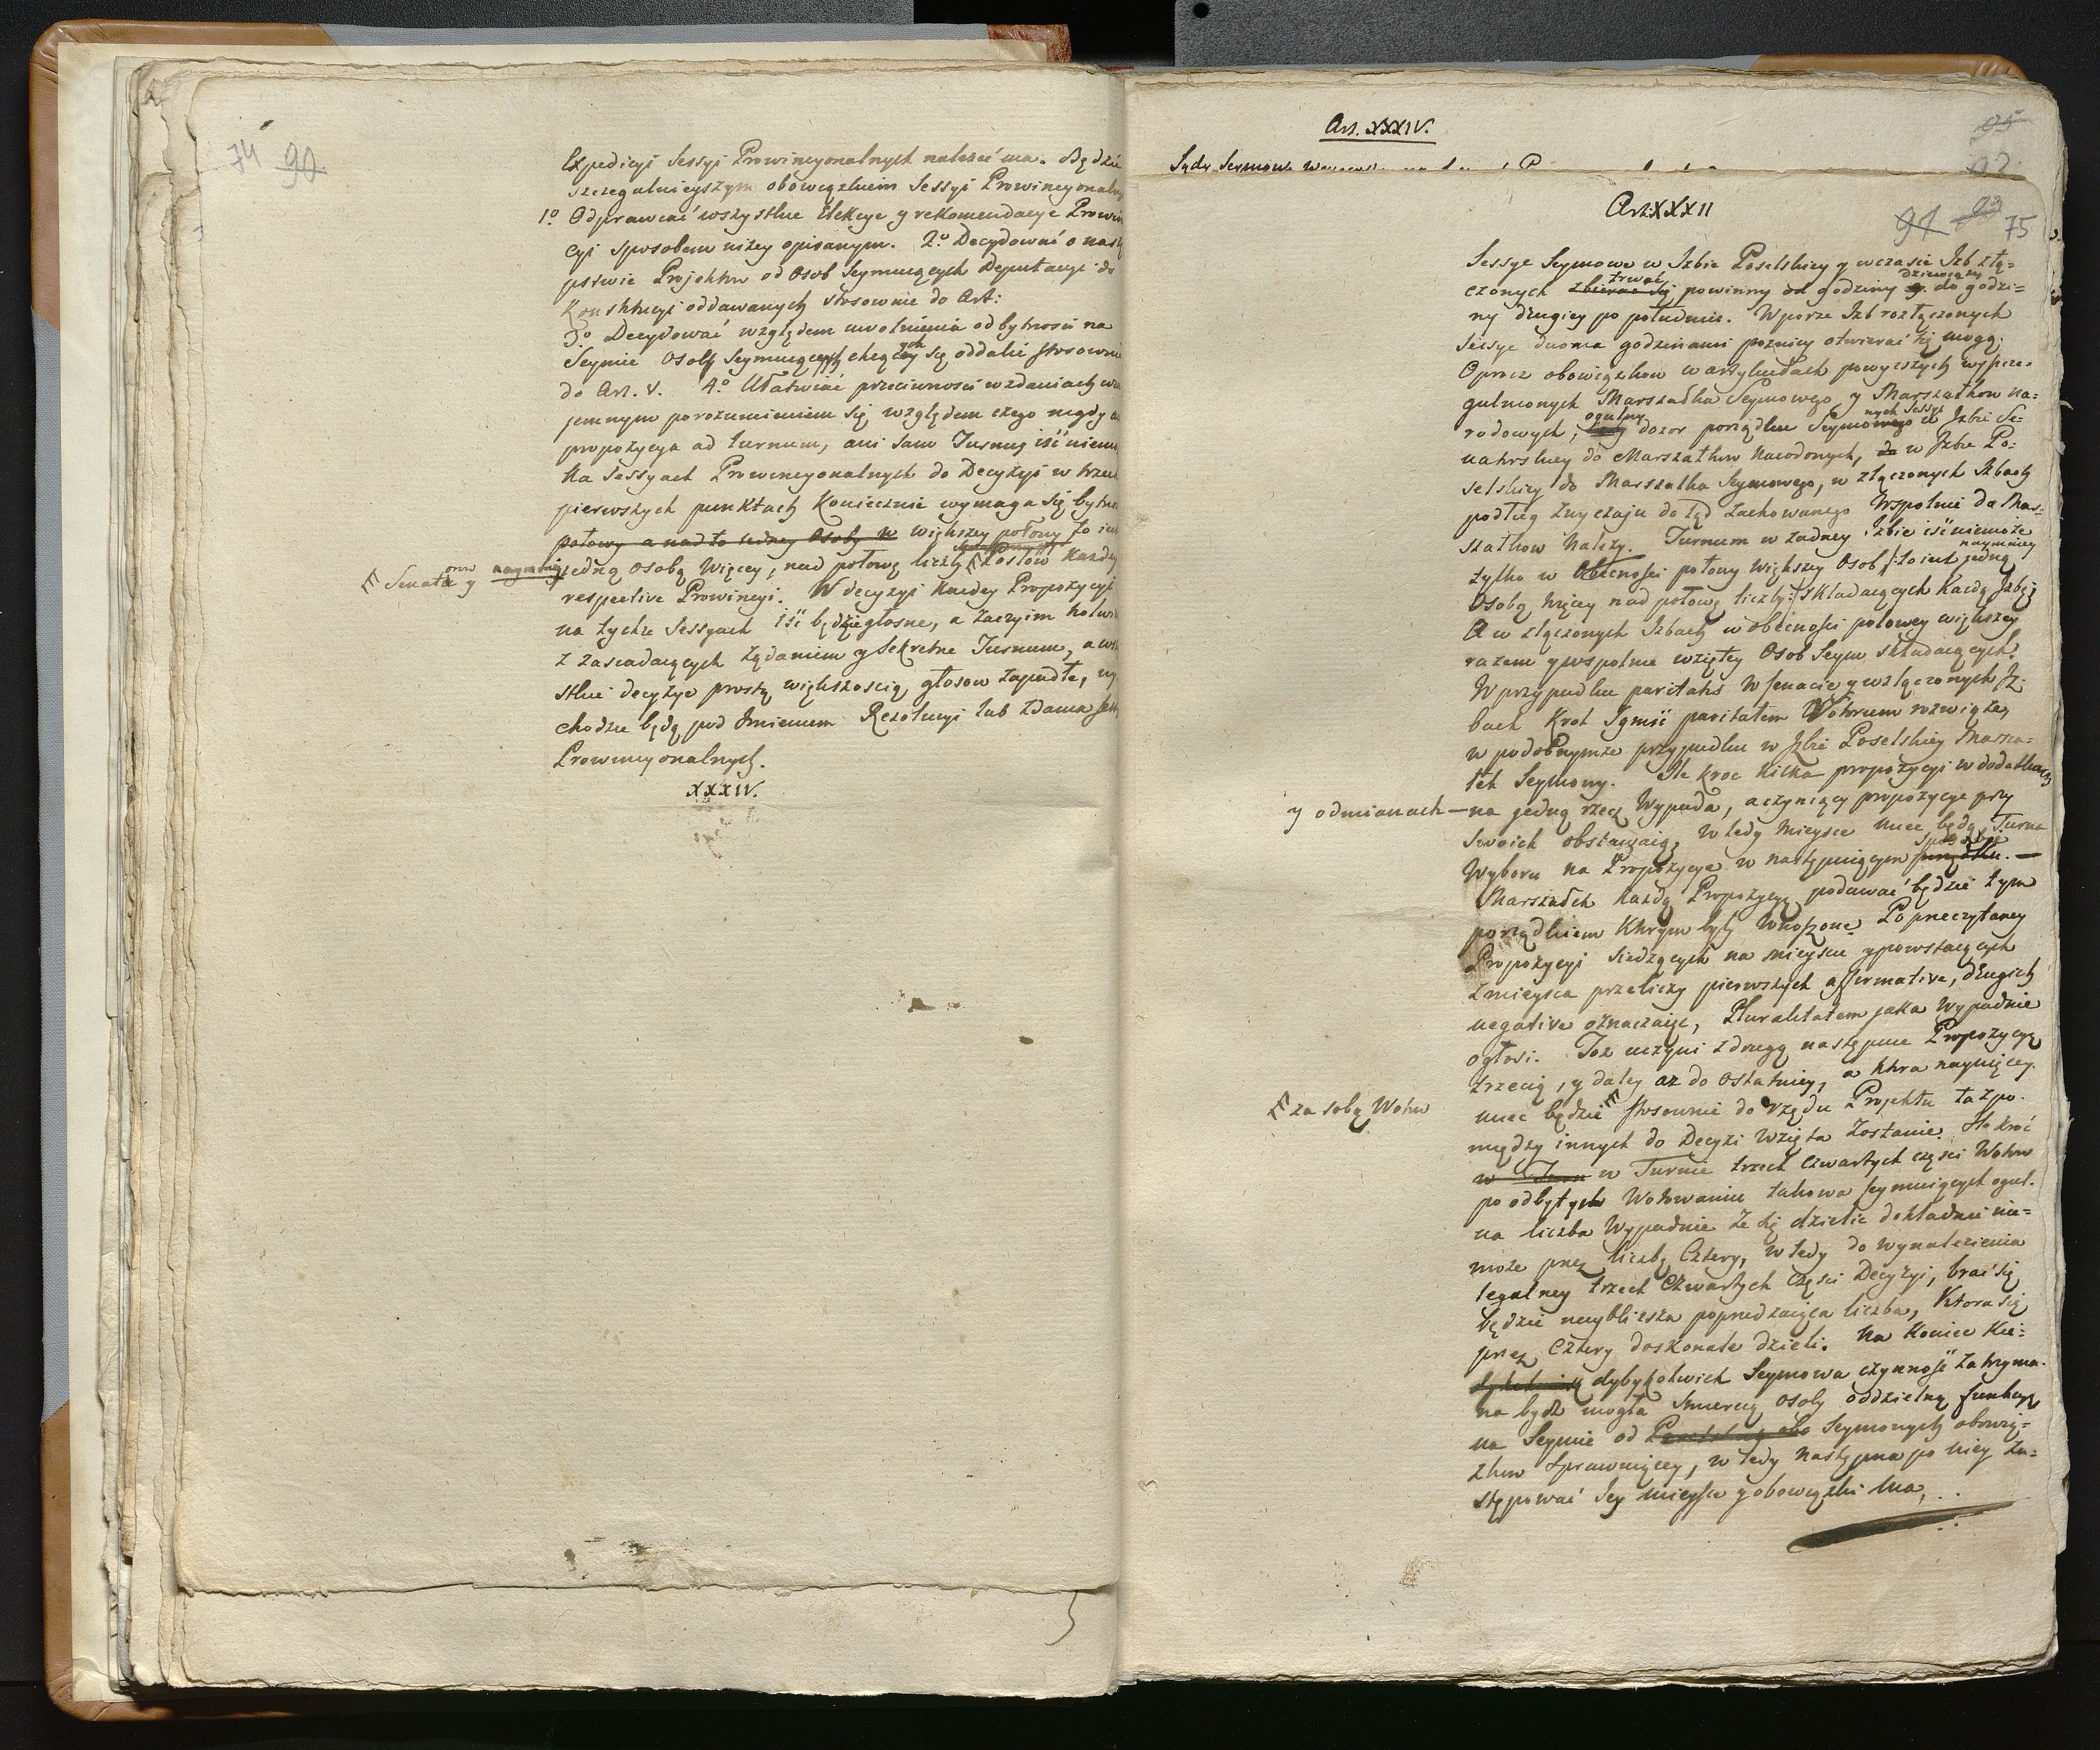 74 90
Expedicyi Sessyi Prowincyonalnych należeć ma. Będzie
szczegulnieyszym obowiązkiem Sessyi Prowincyonaln
1º Odprawiać wszystkie Elekcye y rekomendacye Prowin
cyi sposobem niżey opisanym. 2º Decydować o nastę
pstwie Projektow od Osob Seymuiących Deputacyi do
Konstytucyi oddawanych stosownie do Art:
3º Decydować względem uwolnienia od bytności na
Seymie Osoby Seymuiących chcących się oddalić stosownie
do Art. V. 4º Ułatwiać przeciwności w zdaniach wza
jemnym porozumieniem się, względem czego nigdy ani
propozycya ad turnum, ani sam Turnus iść niemo
Na Sessyach Prowincyonalnych do Decyzyi w trzech
pierwszych punktach koniecznie wymaga się bytno
połowy a nadto iedney Osoby w większey połowy to iest
Senatu oraz y naymniey jedną osobą więcey, nad połowę liczby Posłow każdey
respective Prowincyi. W decyzyi każdey Propozycyi
na tychże Sessyach iść będzie głosne, a zaczyim kolwiek
z zasiadaiących żądaniem y sekretne Turnum, a wszy
stkie decyzye prostą większością głosow zapadłe, wy
chodzić będą pod Imieniem Rezolucyi lub zdania Sessyi
Prowincyonalnych.
XXXIV.
Art. XXXIV.
95
92
Sądy Seymowe
Art. XXXII
91 93 75
Sessye Seymowe w Izbie Poselskiey y w czasie Izb złą=
czonych zbierac się trwać powinny od godziny 9. dziewiątey do godzi=
ny drugiey po południu. W porze Izb rozłączonych
Sessye dwoma godzinami pozniey otwierać się mogą.
Oprocz obowiązkow w artykułach powyższych wyszcze=
gulnionych Marszałka Seymowego, y Marszałkow na=
rodowych, ogulny dozor porządku Seymowych Sessyi w Izbie Se=
natorskiey do Marszałkow Narodowych, do w Izbie Po=
selskiey do Marszałka Seymowego, w złączonych Izbach
podług zwyczaju do tąd zachowanego wspolnie do Mar=
szałkow należy. Turnum w żadney Izbie iść niemoże
tylko w obecności połowy większey Osob /: to iest naymniey jedną
Osobą więcey nad połowę liczby :/ składaiących każdą Izbę;
A w złączonych Izbach w obecności połowey większey
razem y wspolnie wziętey Osob Seym składaiących.
W przypadku paritatis w Senacie y w złączonych Iz-
bach Krol Jgmść paritatem Wotorum rozwiąże,
w podobnymże przypadku w Izbie Poselskiey Marsza=
łek Seymowy. Ile kroc kilka propozycyi w dodatkach
y odmianach — na jedną rzecz wypada, a czyniący propozycye przy
swoich obstawaią, w tedy mieysce miec będą Turna
Wyboru na Propozycye w następuiącym porządku. sposobie —
Marszałek każdą Propozycyę podawać będzie tym
porządkiem ktorym były wnoszone. Po przeczytaney
Propozycyi siedzących na mieyscu y powstaiących
z mieysca przeliczy pierwszych affirmative, drugich
negative oznaczaiąc, Pluralitatem jaka wypadnie
ogłosi. Toż uczyni z drugą następnie Propozycyą
trzecią, y daley aż do ostatniey, a ktora naywięcey
za sobą Wotow miec będzie stosownie do rzędu Projektu ta z po-
między innych do Decyzi wzięta zostanie. Ile kroć
w Turn w Turnie trzech czwartych części Wotow
po odbytych Wotowaniu takowa Seymuiących ogul-
na liczba wypadnie że się dzielic dokładnie nie=
może przez liczbę cztery, w tedy do wynalezienia
legalney trzech czwartych części Decyzyi, brać się
będzie naybliższa poprzedzaiąca liczba, ktora się
przez cztery doskonale dzieli. Na koniec kie=
dybykolwiek Seymowa czynność zatrzyma-
na bydź mogła śmiercią osoby oddzielną funkcyę
na Seymie od Seymowych obowią=
zkow sprawuiącey, w tedy następna po niey za=
stępować Jey mieysce y obowiązki ma.